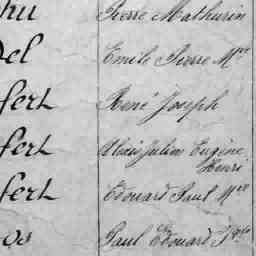 hu Pierre Mathurin
el Emile Pierre Mie
fert René Joseph
fert Alexis Julien Eugène
Henri
fert Edouard Paul Mie
os Paul Edouard